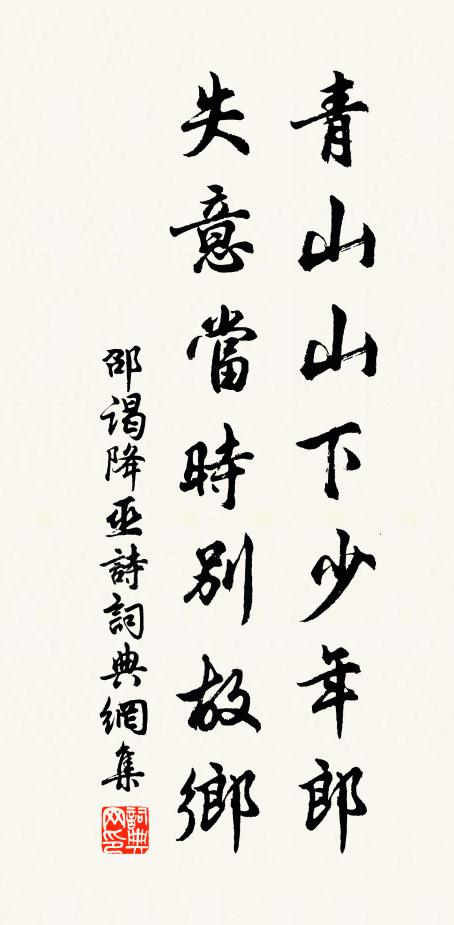 青山山下少年郎
失意當時別故鄉
邵谒降巫詩詞典網集
詞典网印